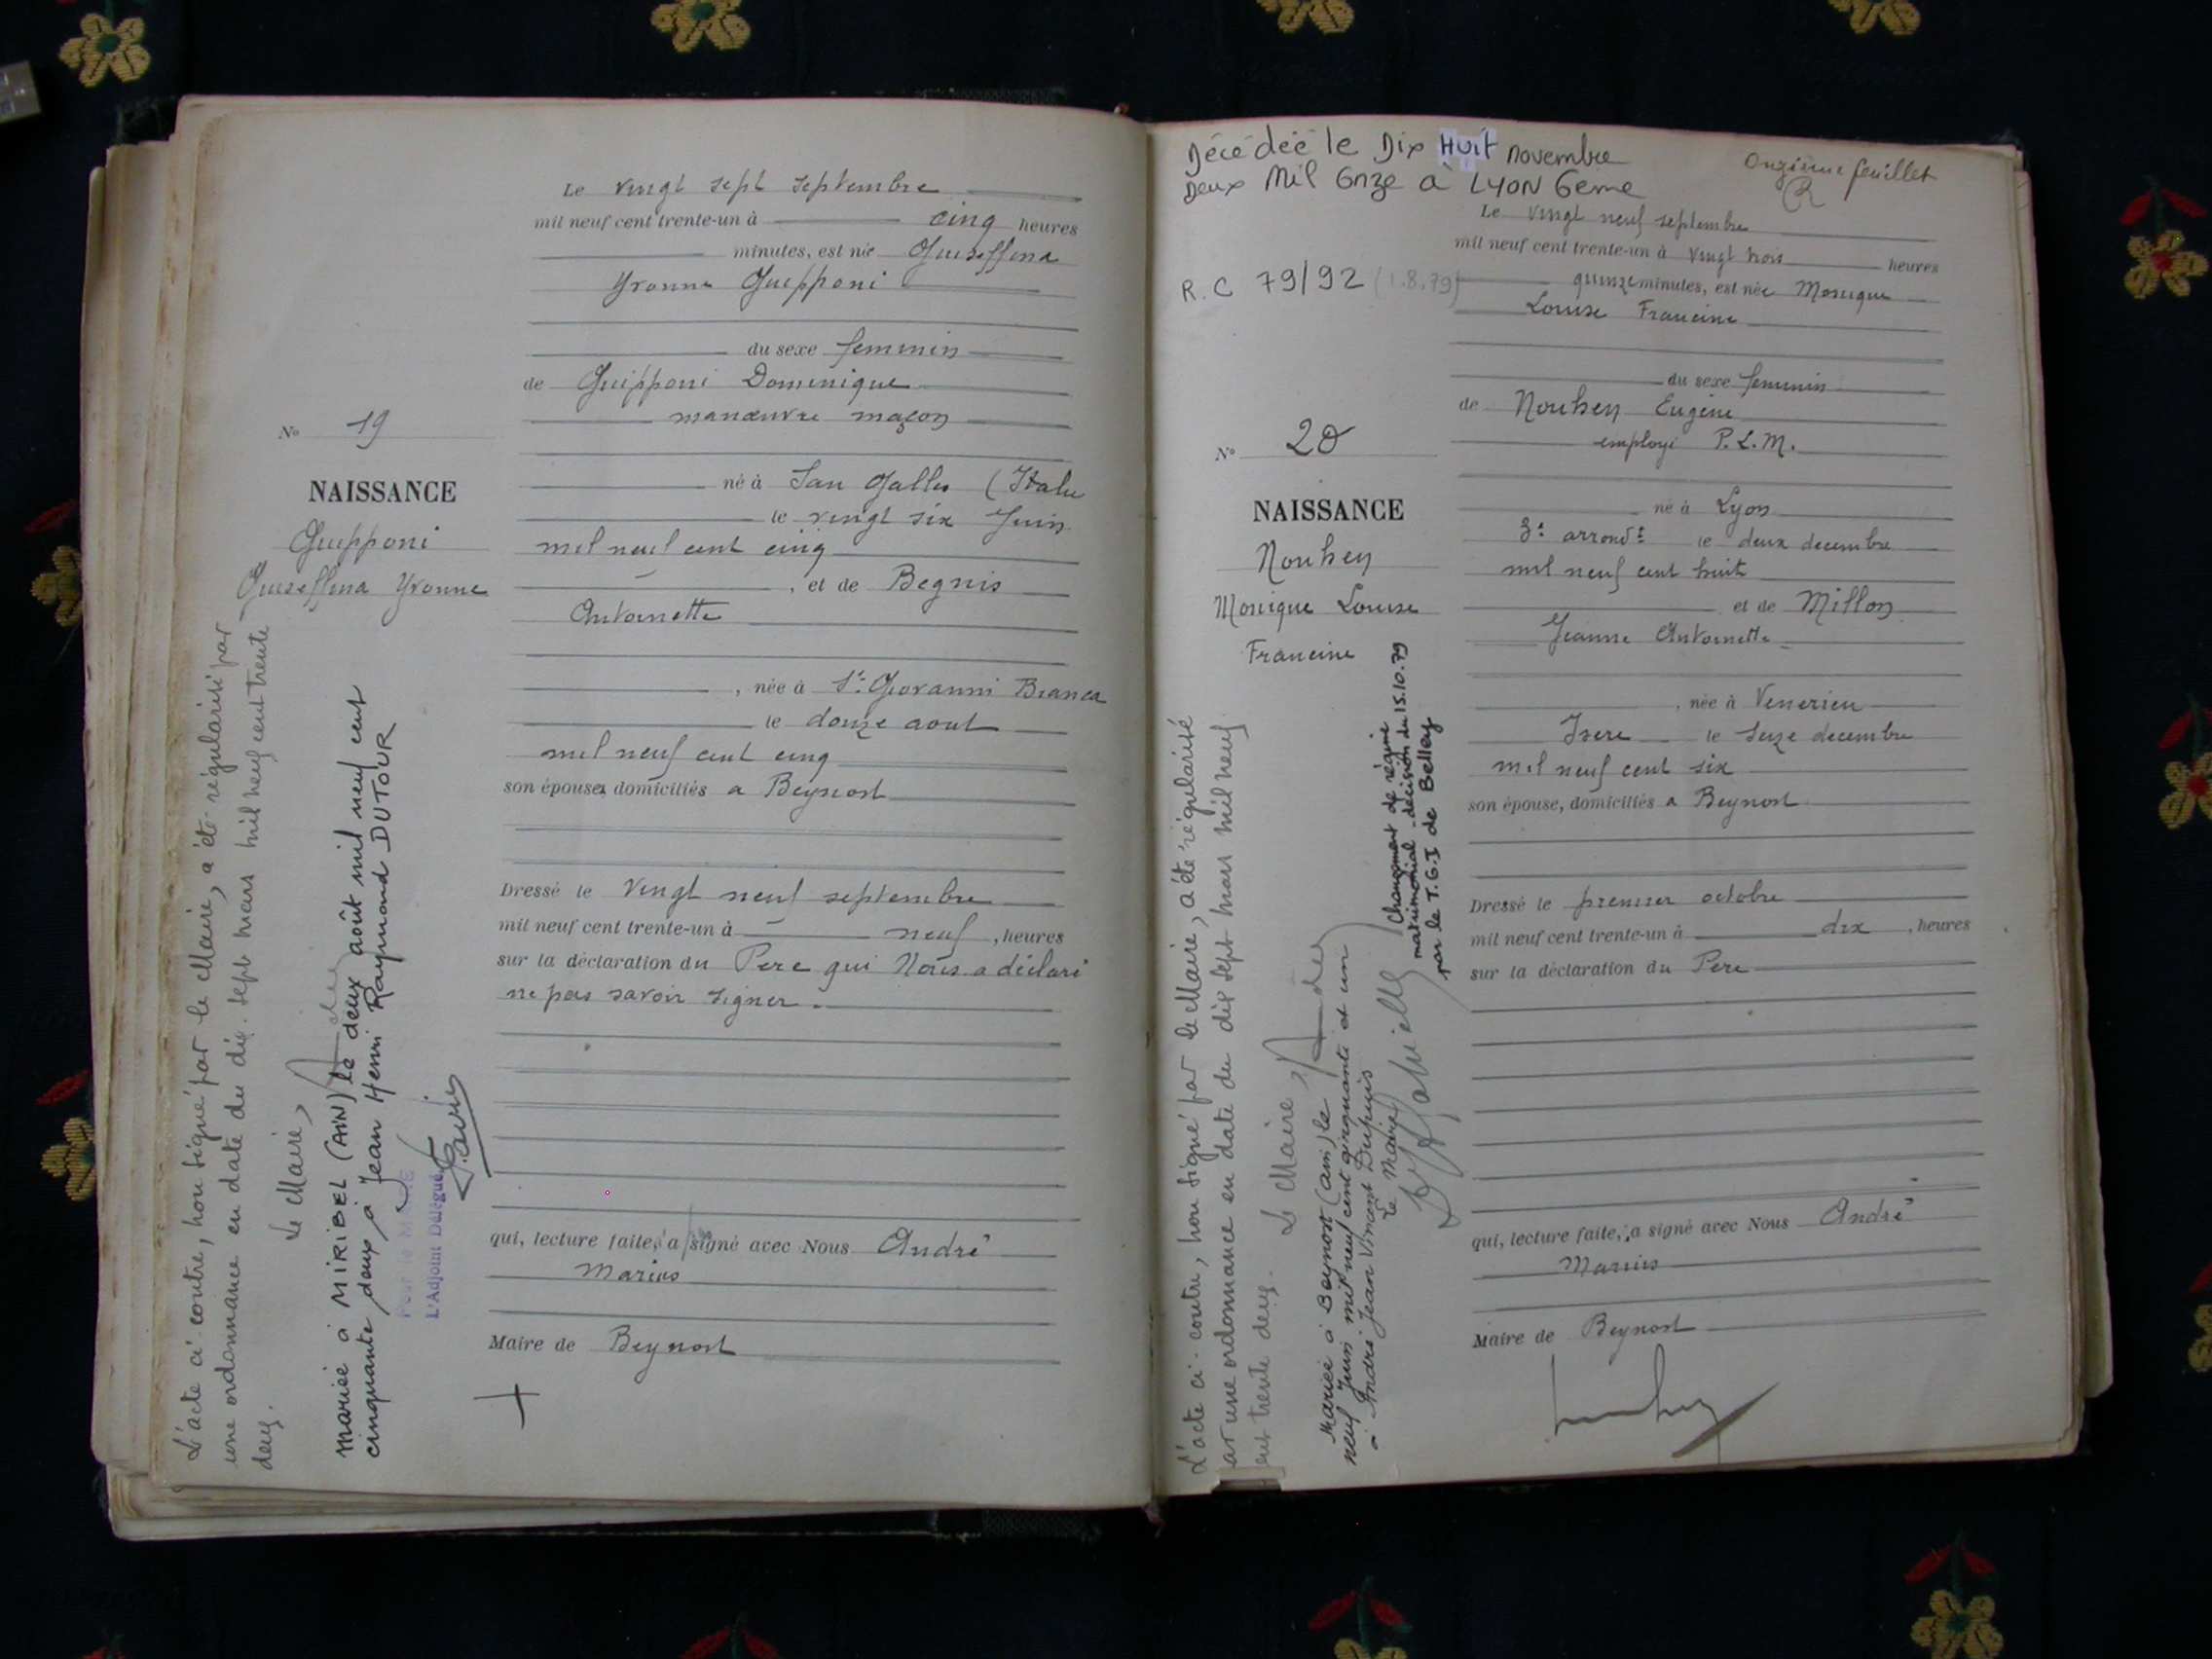 Le vingt sept septembre
mil neuf cent trente-un à cinq heures
minutes, est née Guiseffina
Yvonne Guipponi
du sexe feminin
de Guipponi Dominique
manœuvre maçon
né à San Gallo (Italie
le vingt six Juin
mil neuf cent cinq
, et de Begnis
Antoinette
, née à St Giovanni Bianca
le douze aout
mil neuf cent cinq
son épouse, domiciliés a Beynost
Dressé le vingt neuf septembre
mil neuf cent trente-un à neuf , heures
sur la déclaration du Pere qui Nous a déclaré
ne pas savoir signer.
qui, lecture faite, a signé avec Nous André
Marius
Maire de Beynost
No 19
NAISSANCE
Guipponi
Guiseffina Yvonne
L'acte ci-contre, non signé par le Maire, a été régularisé par
une ordonnance en date du dix-sept mars mil neuf cent trente
deux.
Le Maire,
mariée à MIRIBEL (AIN) le deux août mil neuf cent
cinquante deux à Jean Henri Raymond DUTOUR
L'Adjoint Délégué
Décédée le Dix Huit novembre
Deux Mil Onze à LYON 6ème
Onzième feuillet
R.C 79/92 (1.8.79)
Le vingt neuf septembre
mil neuf cent trente-un à vingt trois heures
quinze minutes, est née Monique
Louise Francine
du sexe feminin
de Nouhen Eugène
employé P.L.M.
né à Lyon
3e arrondt le deux decembre
mil neuf cent huit
et de Millon
Jeanne Antoinette
, née à Venerieu
Isere le seize decembre
mil neuf cent six
son épouse, domiciliés a Beynost
Dressé le premier octobre
mil neuf cent trente-un à dix , heures
sur la déclaration du Pere
qui, lecture faite, a signé avec Nous André
Marius
Maire de Beynost
No 20
NAISSANCE
Nouhen
Monique Louise
Francine
L'acte ci-contre, non signé par le Maire, a été régularisé
par une ordonnance en date du dix sept mars mil neuf
cent trente deux.
Le Maire,
Mariée à Beynost (ain) le
neuf Juin mil neuf cent cinquante et un
à André Jean Vincent Dupuis
Le Maire
Changement de régime
matrimonial - décision du 15.10.79
par le T.G.I de Belley